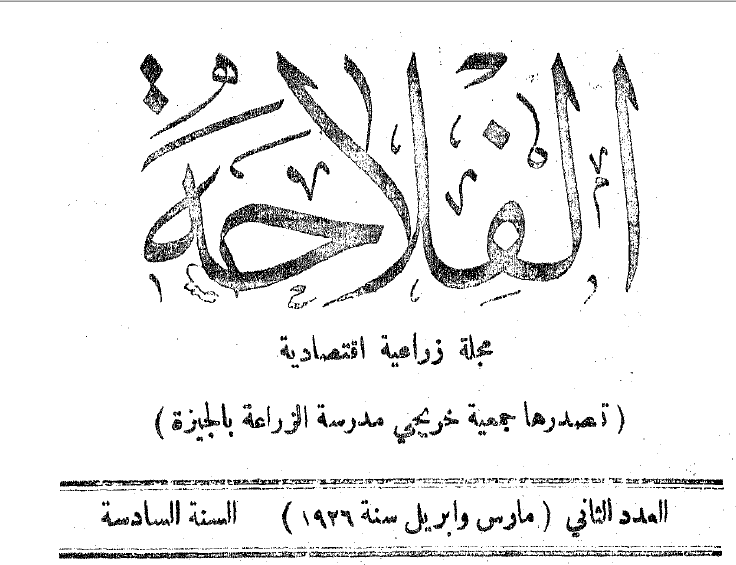 الفلاحة
مجلة زراعية اقتصادية
( تصدرها جمعية خريجي مدرسة الزراعة بالجيزة )
العدد الثاني ( مارس وابريل سنة ١٩٢٦ ) السنة السادسة